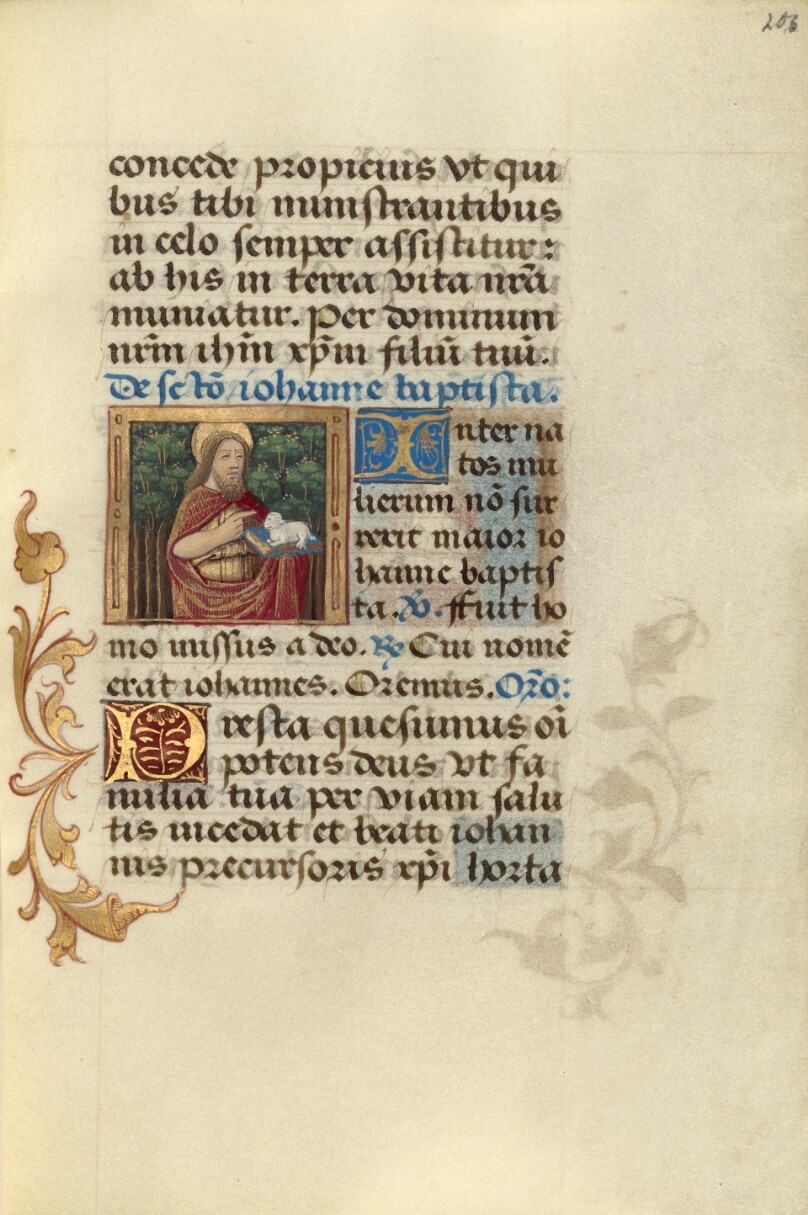 206
concede propicius vt qui
bus tibi ministrantibus
in celo semper assistitur:
ab his in terra vita nr̄a
muniatur. Per dominum
nr̄m ihm̄ xp̄m filiū tuū.
De sctō iohanne baptista.
Inter na
tos mu
lierum nō sur
rexit maior io
hanne baptis
ta. ℣. Ffuit ho
mo missus a deo. ℟ Cui nomē
erat iohannes. Oremus. Orō:
Presta quesumus oī
potens deus vt fa
milia tua per viam salu
tis incedat et beati iohan
nis precursoris xp̄i horta